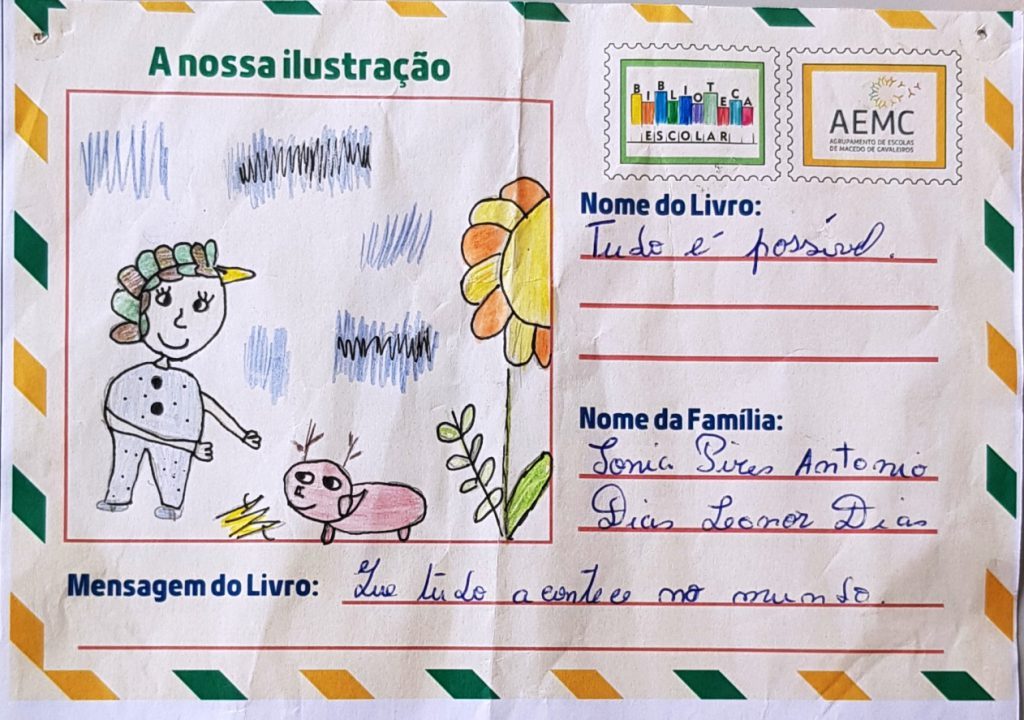 A nossa ilustração
BIBLIOTECA
ESCOLAR
AEMC
AGRUPAMENTO DE ESCOLAS
DE MACEDO DE CAVALEIROS
Nome do Livro:
Tudo é possível.
Nome da Família:
Sonia Pires Antonio
Dias Leonor Dias
Mensagem do Livro: Que tudo acontece no mundo.